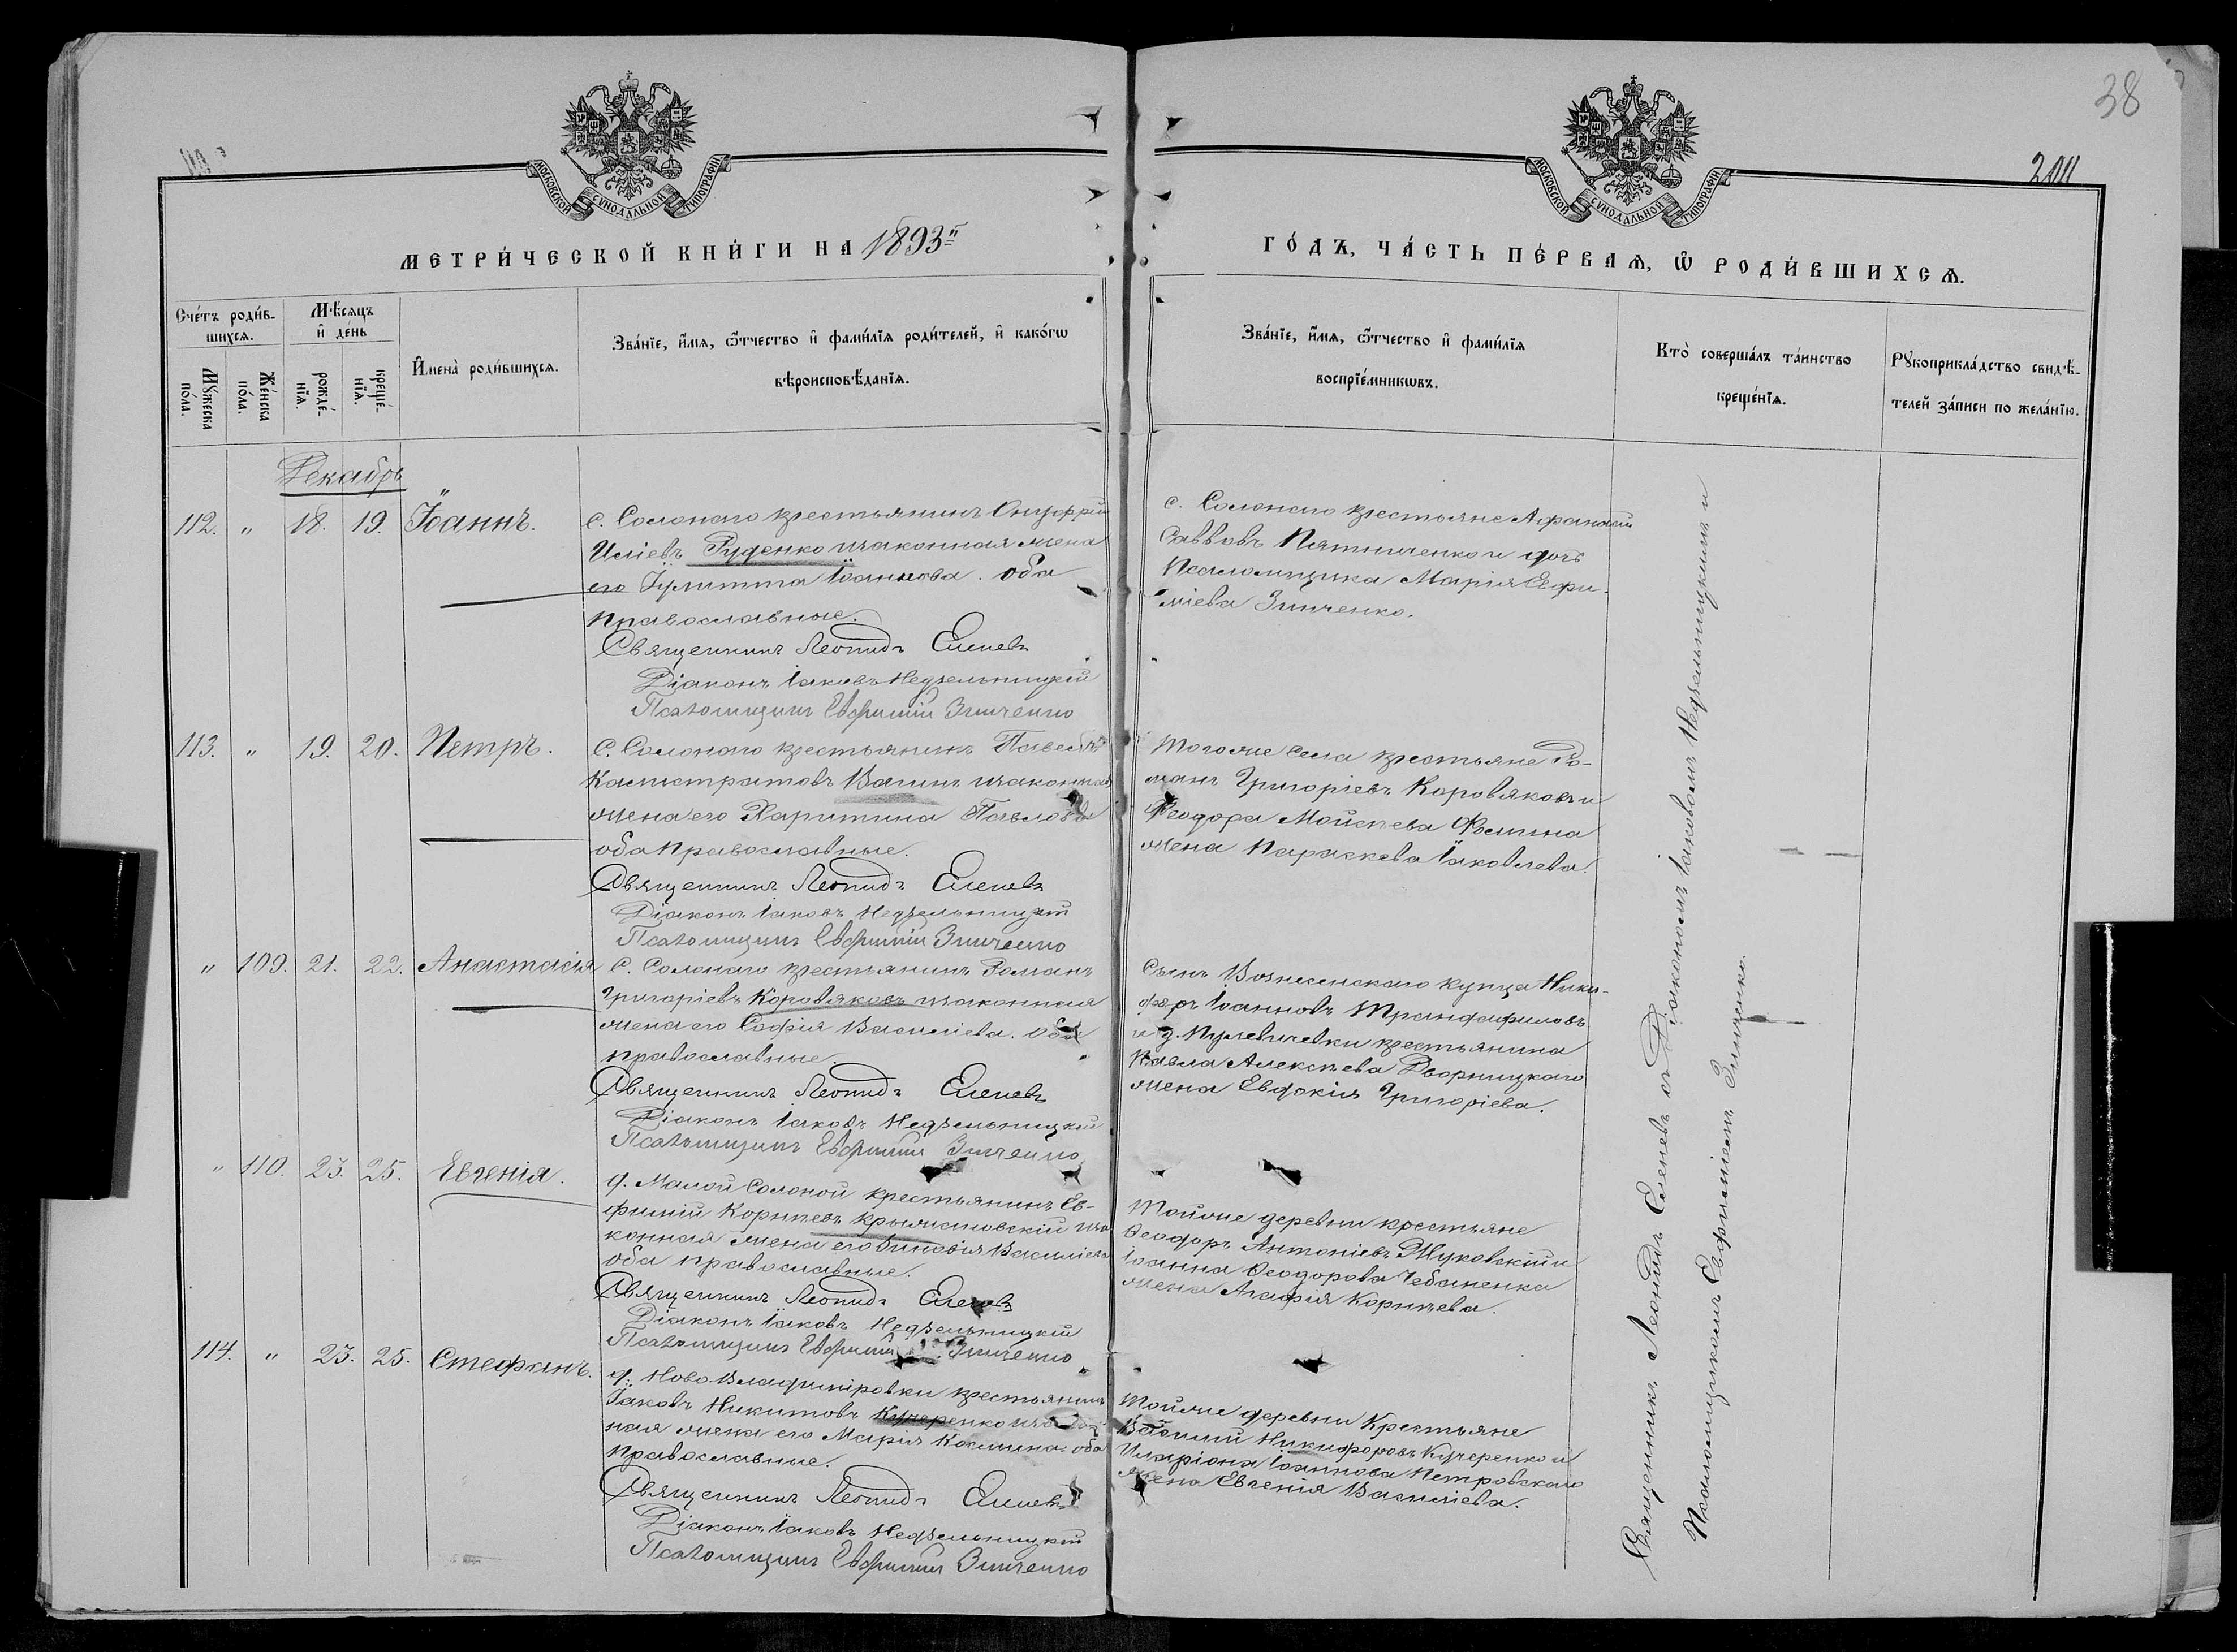 38
211
МОСКОВСКОЙ СѴНОДАЛЬНОЙ ТИПОГРАФІИ
МОСКОВСКОЙ СѴНОДАЛЬНОЙ ТИПОГРАФІИ
МЕТРИ́ЧЕСКОЙ КНИ́ГИ НА 1893й
ГО́ДЪ, ЧА́СТЬ ПЕ́РВАѦ, Ѡ҆ РОДИ́ВШИХСѦ.
Сче́тъ роди́в-
шихсѧ.
Мꙋ́жеска по́ла.
Же́нска по́ла.
Мѣ́сѧцъ
и҆ де́нь
рожде́-
нїѧ.
креще́-
нїѧ.
И҆мена̀ роди́вшихсѧ.
Зва́нїе, и҆́мѧ, ѻ҆́тчество и҆ фами́лїѧ роди́телей, и҆ како́гѡ
вѣроисповѣ́данїѧ.
Зва́нїе, и҆́мѧ, ѻ҆́тчество и҆ фами́лїѧ
воспрїе́мникѡвъ.
Кто̀ соверша́лъ та́инство
креще́нїѧ.
Рꙋкоприкла́дство свидѣ́-
телей за́писи по жела́нїю.
Декабрь
112. " 18. 19. Іоаннъ.
с. Солонаго крестьянинъ Онуфрій
Иліевъ Руденко изаконная жена
его Іулитта Іоаннова. оба
православные.
Священникъ Леонидъ Еленевъ
Діаконъ Іаковъ Недзельницкій
Псаломщикъ Евфимій Зинченко
с. Солонаго крестьяне Афанасій
Саввовъ Пятниченко и дочь
Псаломщика Марія Евфи-
міева Зинченко.
113. " 19. 20. Петръ.
С. Солонаго крестьянинъ Павелъ
Калистратовъ Вагинъ изаконная
жена его Харитина Павлова
оба православные.
Священникъ Леонидъ Еленевъ
Діаконъ Іаковъ Недзельницкій
Псаломщикъ Евфимій Зинченко
Тогоже села крестьяне Ро-
манъ Григоріевъ Коровяковъ и
Феодора Мойсеева Фомина
жена Параскева Іаковлева.
" 109. 21. 22. Анастасія
С. Солонаго крестьянинъ Романъ
Григоріевъ Коровяковъ изаконная
жена его Софія Василіева. оба
православные.
Священникъ Леонидъ Еленевъ
Діаконъ Іаковъ Недзельницкій
Псаломщикъ Евфимій Зинченко
Сынъ Вознесенскаго купца Ники-
форъ Іоанновъ Трандафиловъ
и д. Мулевичевки крестьянина
Павла Алексѣева Дворницкаго
жена Евдокія Григоріева.
" 110. 23. 25. Евгенія.
д. Малой Солоной крестьянинъ Ев-
фимій Корнѣевъ Крыжановскій иза
конная жена его Зиновія Василіева
оба православные.
Священникъ Леонидъ Еленевъ
Діаконъ Іаковъ Недзельницкій
Псаломщикъ Евфимій Зинченко
Тойже деревни крестьяне
Ѳеодоръ Антоніевъ Жуковскій и
Іоанна Ѳеодорова Чебаненка
жена Агафія Корнѣева.
114. " 23. 25. Стефанъ.
д. Ново Владиміровки крестьянинъ
Іаковъ Никитовъ Кучеренко изакон
ная жена его Марія Космина оба
православные.
Священникъ Леонидъ Еленевъ
Діаконъ Іаковъ Недзельницкій
Псаломщикъ Евфимій Зинченко
Тойже деревни Крестьяне
Василій Никифоровъ Кучеренко и
Иларіона Іоаннова Петровскаго
жена Евгенія Василіева.
Священникъ Леонидъ Еленевъ съ Діакономъ Іаковомъ Недзельницкимъ и
Псаломщикомъ Евфиміемъ Зинченко.